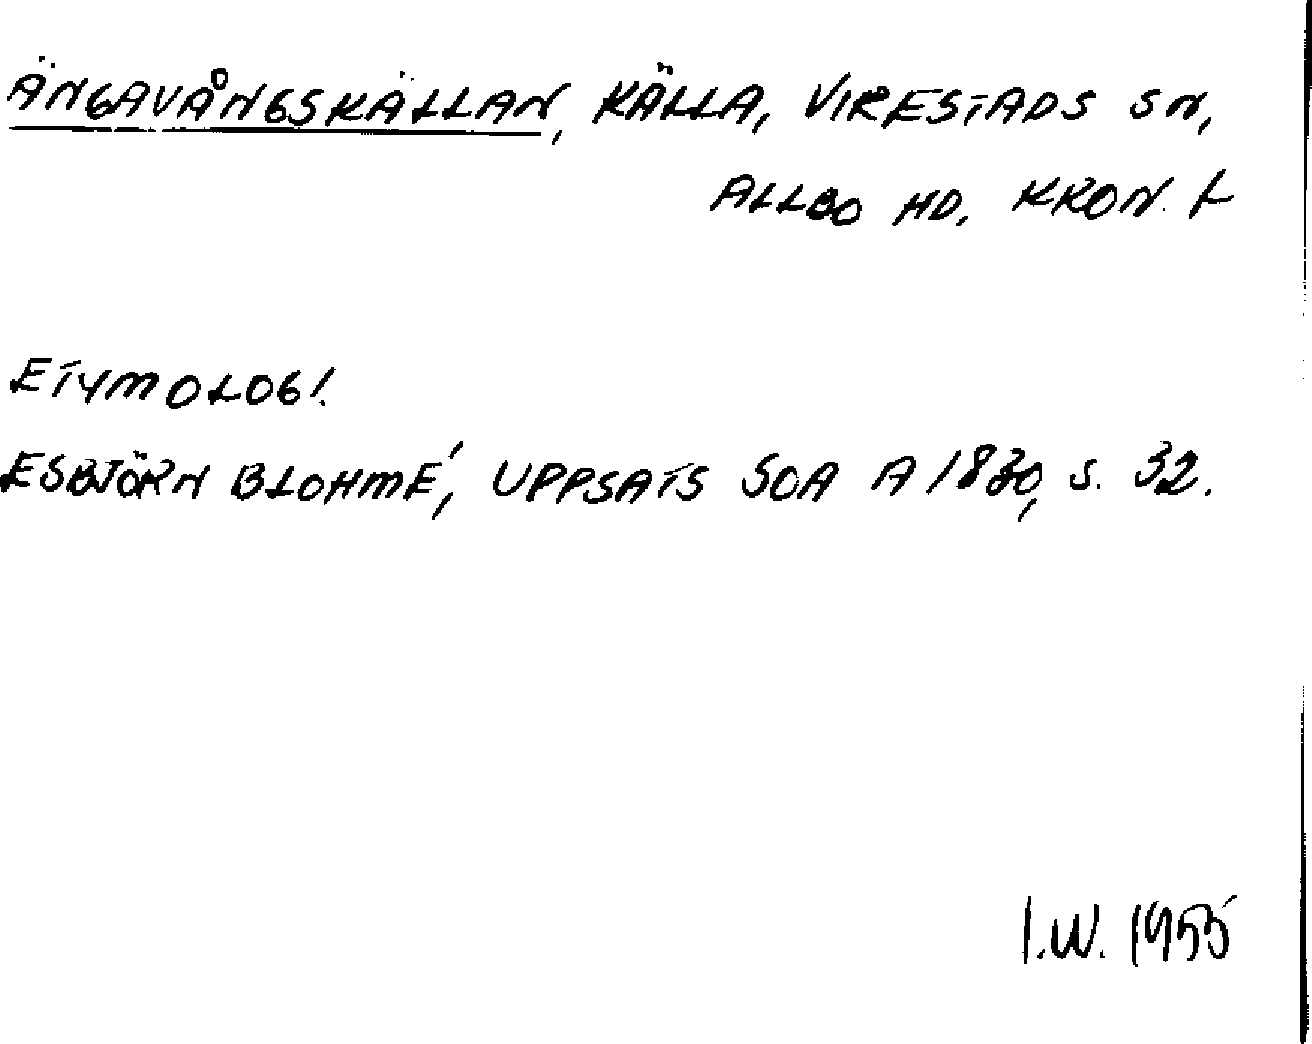 ÄNGAVÅNGSKÄLLAN, KÄLLA, VIRESTADS SN,
ALLBO HD, KRON. L
ETYMOLOGI.
ESBJÖRN BLOHMÉ, UPPSATS SOA A 1830, S. 32.
I.W. 1955